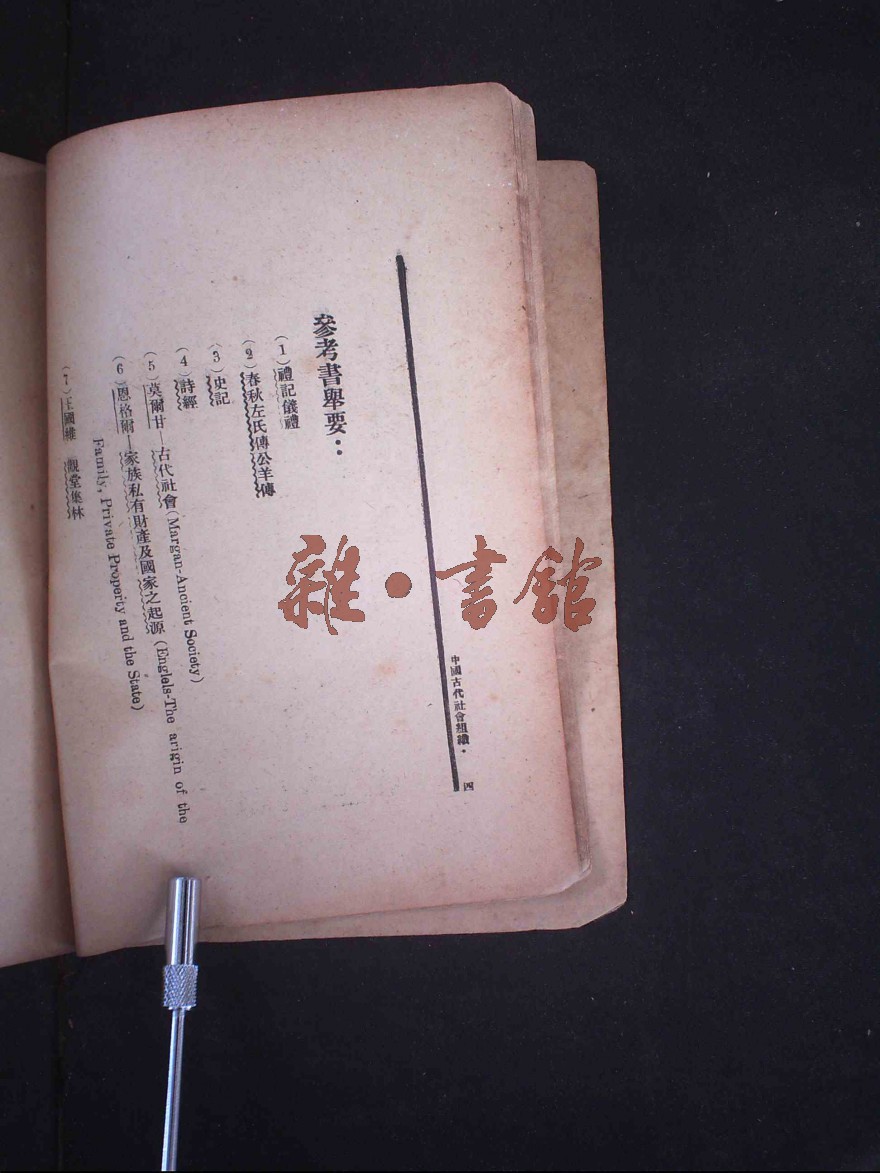 中國古代社會組織・ 四
參考書舉要：
(1)禮記儀禮
(2)春秋左氏傳公羊傳
(3)史記
(4)詩經
(5)莫爾甘—古代社會(Margan-Ancient Society)
(6)恩格爾—家族私有財產及國家之起源(Englels-The arigin of the
Family, Private Property and the State)
(7)王國維 觀堂集林
雜・書館